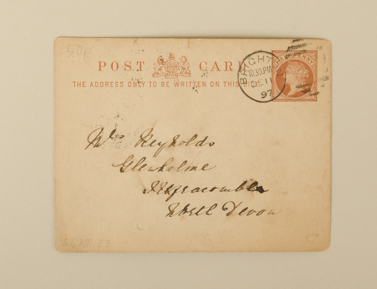 50p
POST CARD
THE ADDRESS ONLY TO BE WRITTEN ON THIS
BRIGHTON
10.30 PM
DE 11
97
Mrs Reynolds
Glenholme
Ilfracombe
North Devon